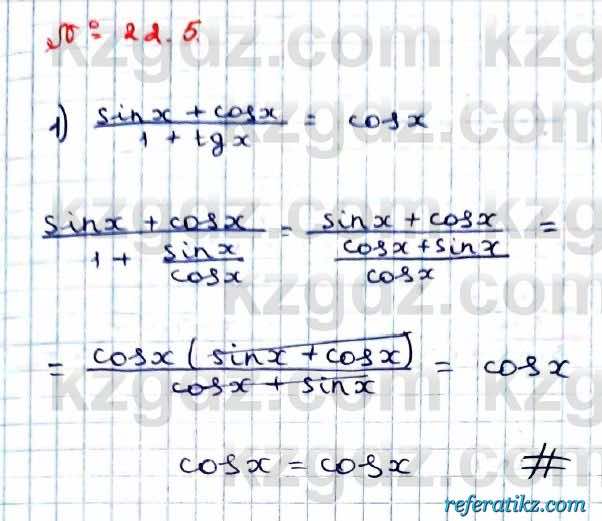 № 22.5.
1) (sinx + cosx)/(1 + tgx) = cosx
(sinx + cosx)/(1 + sinx/cosx) = (sinx + cosx)/((cosx + sinx)/cosx) =
= (cosx (sinx + cosx))/(cosx + sinx) = cosx
cosx = cosx #
kzgdz.com
referatikz.com